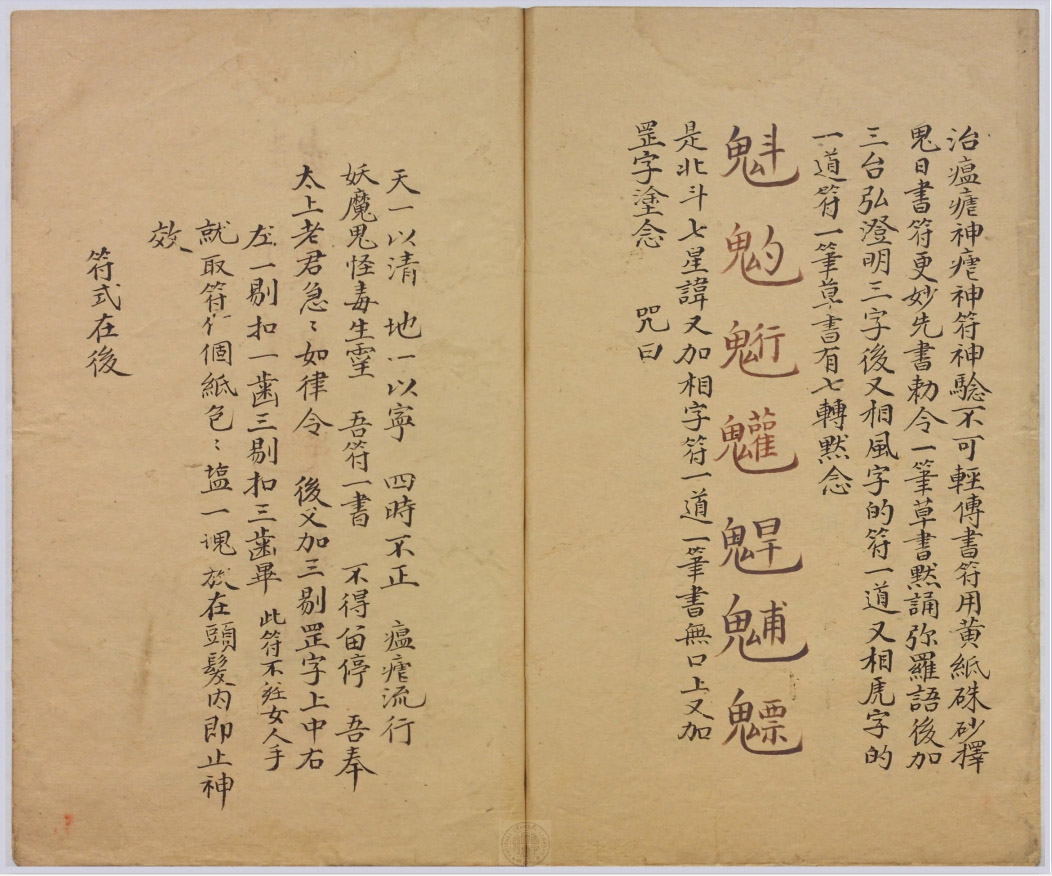 治瘟瘧神瘧神符神驗不可輕傳書符用黃紙硃砂擇
鬼日書符更妙先書勅令一筆草書默誦弥羅語後加
三台弘澄明三字後又相風字的符一道又相虎字的
一道符一筆草書有七轉默念
魁𩲃䰢魓
是北斗七星諱又加相字符一道一筆書無口上又加
罡字塗念 咒曰
天一以清 地一以寧 四時不正 瘟瘧流行
妖魔鬼怪毒生靈 吾符一書 不得畄停 吾奉
太上老君急〻如律令 後又加三剔罡字上中右
左一剔扣一歯三剔扣三歯畢 此符不經女人手
就取符個紙色〻塩一塊放在頭髮內即止神
效
符式在後